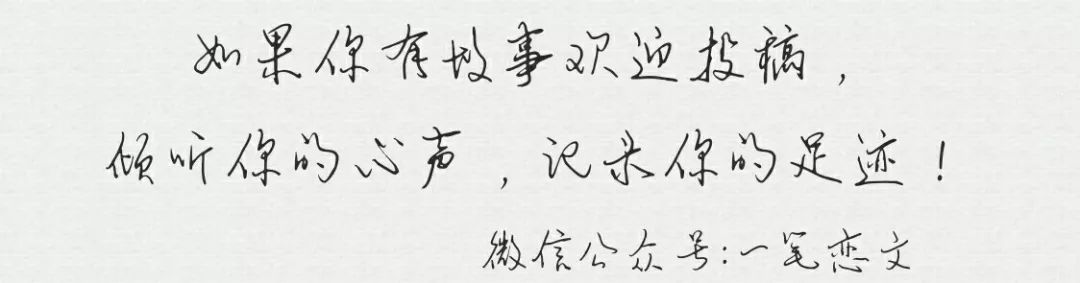 如果你有故事欢迎投稿，
倾听你的心声，记录你的足迹！
微信公众号:一笔恋文